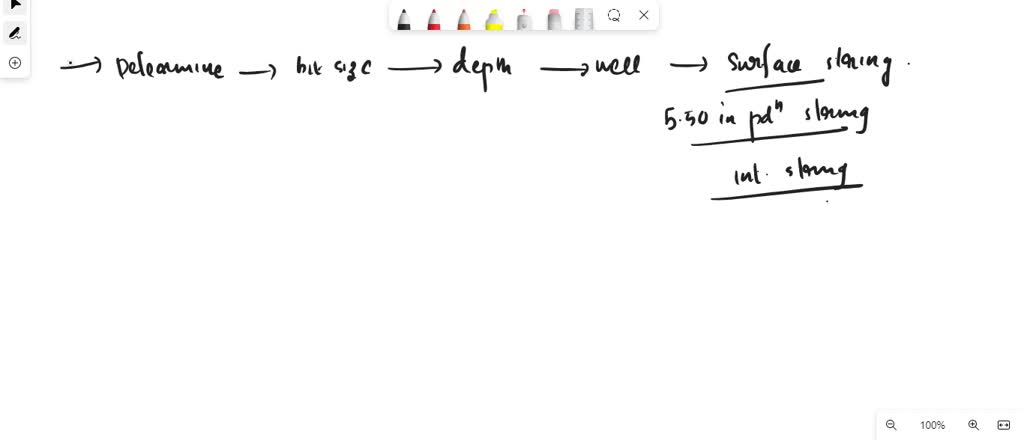 → Determine → bit size → depth → well → surface string.
5.50 in pdⁿ string
int. string
100%